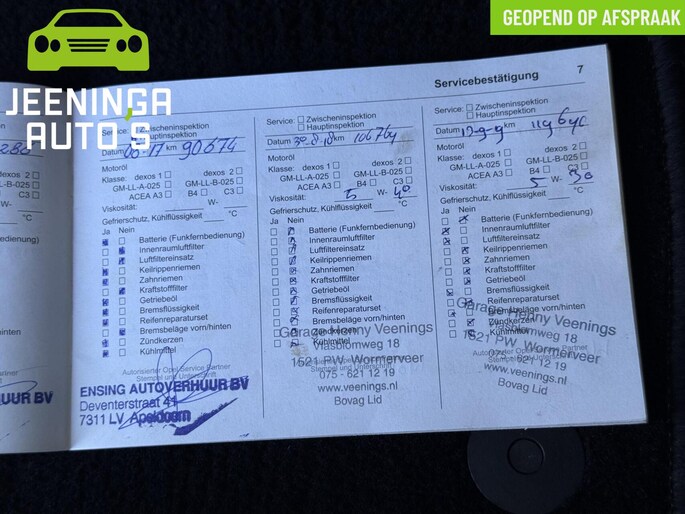 GEOPEND OP AFSPRAAK
JEENINGA
AUTO'S
Servicebestätigung 7
Service: Zwischeninspektion
Hauptinspektion
Datum km 90674
Motoröl
Klasse: dexos 1 dexos 2
GM-LL-A-025 GM-LL-B-025
ACEA A3 B4 C3
Viskosität: W-
Gefrierschutz, Kühlflüssigkeit °C
Ja Nein
Batterie (Funkfernbedienung)
Innenraumluftfilter
Luftfiltereinsatz
Keilrippenriemen
Zahnriemen
Kraftstofffilter
Getriebeöl
Bremsflüssigkeit
Reifenreparaturset
Bremsbeläge vorn/hinten
Zündkerzen
Kühlmittel
Autorisierter Opel Service Partner
Stempel und Unterschrift
ENSING AUTOVERHUUR BV
Deventerstraat 41
7311 LV Apeldoorn
Service: Zwischeninspektion
Hauptinspektion
Datum km
Motoröl
Klasse: dexos 1 dexos 2
GM-LL-A-025 GM-LL-B-025
ACEA A3 B4 C3
Viskosität: 5 W- 40
Gefrierschutz, Kühlflüssigkeit °C
Ja Nein
Batterie (Funkfernbedienung)
Innenraumluftfilter
Luftfiltereinsatz
Keilrippenriemen
Zahnriemen
Kraftstofffilter
Getriebeöl
Bremsflüssigkeit
Reifenreparaturset
Bremsbeläge vorn/hinten
Zündkerzen
Kühlmittel
Garage Henny Veenings
Vlasblomweg 18
1521 PW. Wormerveer
075 - 621 12 19
www.veenings.nl
Bovag Lid
Service: Zwischeninspektion
Hauptinspektion
Datum km
Motoröl
Klasse: dexos 1 dexos 2
GM-LL-A-025 GM-LL-B-025
ACEA A3 B4 C3
Viskosität: 5 W- 30
Gefrierschutz, Kühlflüssigkeit °C
Ja Nein
Batterie (Funkfernbedienung)
Innenraumluftfilter
Luftfiltereinsatz
Keilrippenriemen
Zahnriemen
Kraftstofffilter
Getriebeöl
Bremsflüssigkeit
Reifenreparaturset
Bremsbeläge vorn/hinten
Zündkerzen
Kühlmittel
Garage Henny Veenings
Vlasblomweg 18
1521 PW. Wormerveer
075 - 621 12 19
www.veenings.nl
Bovag Lid